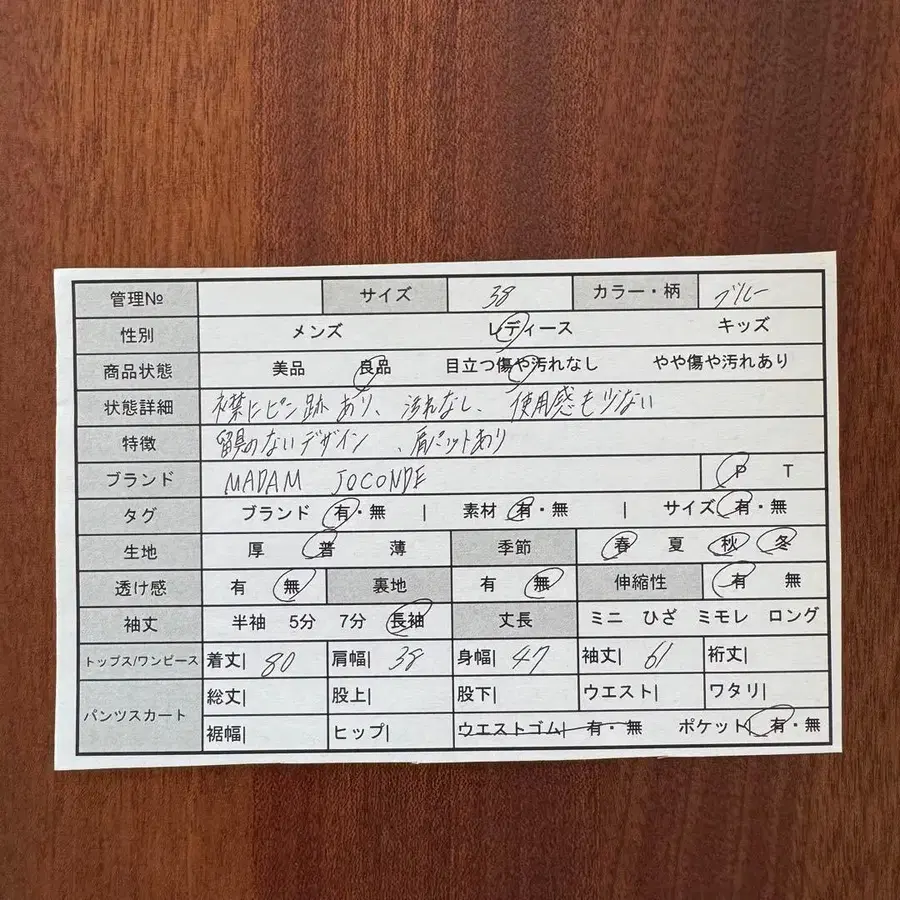 管理№ サイズ 38 カラー・柄 ブルー
性別 メンズ レディース キッズ
商品状態 美品 良品 目立つ傷や汚れなし やや傷や汚れあり
状態詳細 襟にピン跡あり、汚れなし、使用感も少ない
特徴 留具のないデザイン、肩パットあり
ブランド MADAM JOCONDE P T
タグ ブランド 有・無 | 素材 有・無 | サイズ 有・無
生地 厚 普 薄 季節 春 夏 秋 冬
透け感 有 無 裏地 有 無 伸縮性 有 無
袖丈 半袖 5分 7分 長袖 丈長 ミニ ひざ ミモレ ロング
トップス/ワンピース 着丈| 80 肩幅| 38 身幅| 47 袖丈| 61 裄丈|
パンツスカート 総丈| 股上| 股下| ウエスト| ワタリ|
裾幅| ヒップ| ウエストゴム| 有・無 ポケット| 有・無